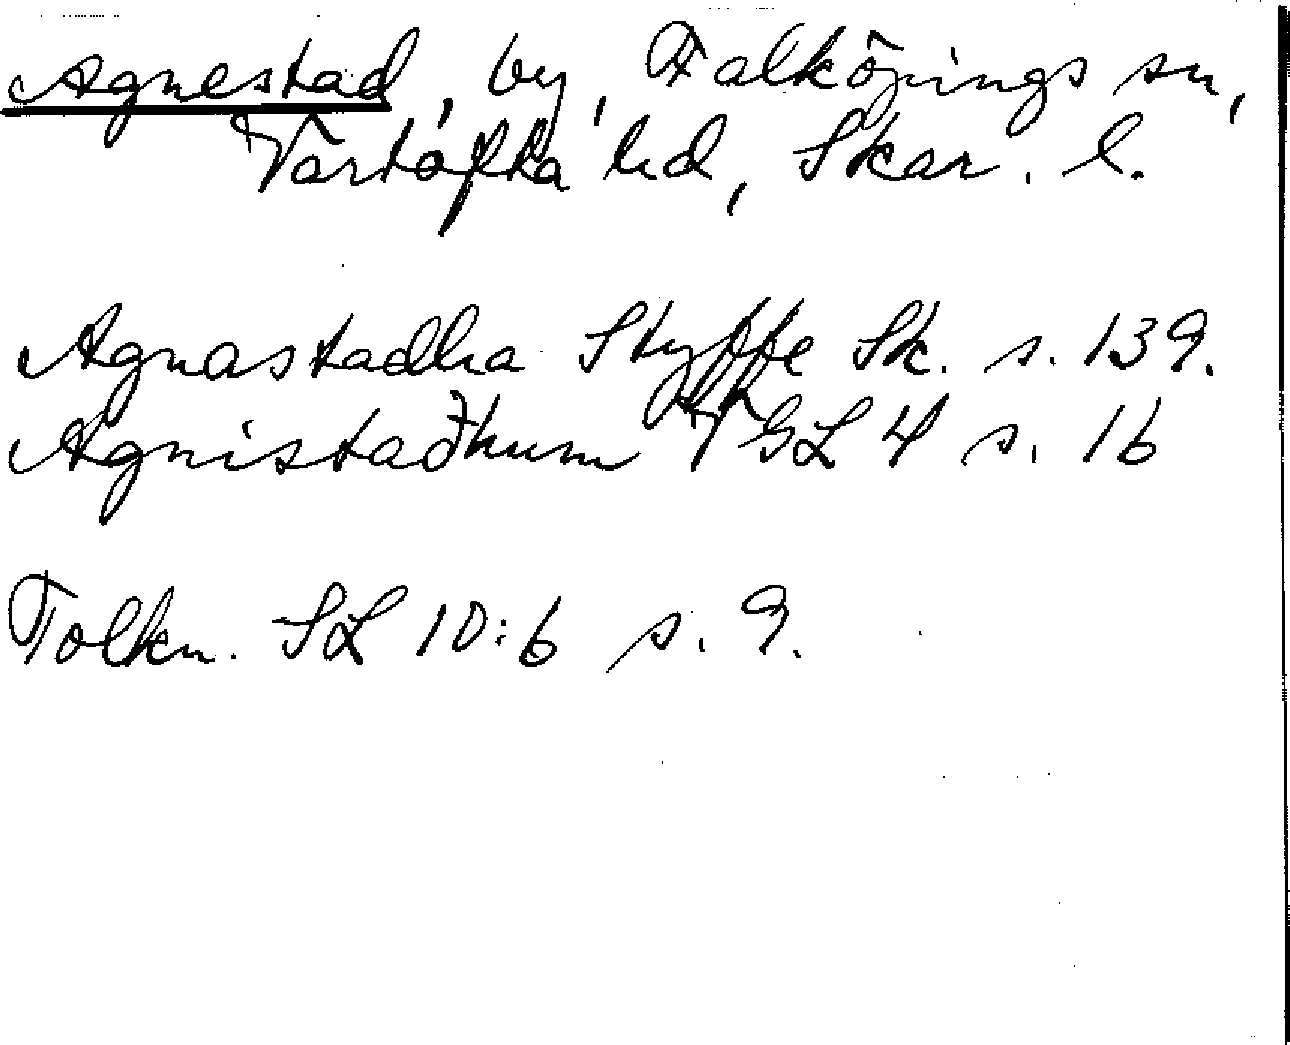 Agnestad, by, Falköpings sn,
Vartofta hd, Skar. l.
Agnastadha Styffe Sk. s. 139.
Agnistaðhum VGL 4 s. 16
Tolkn. SL 10:6 s. 9.